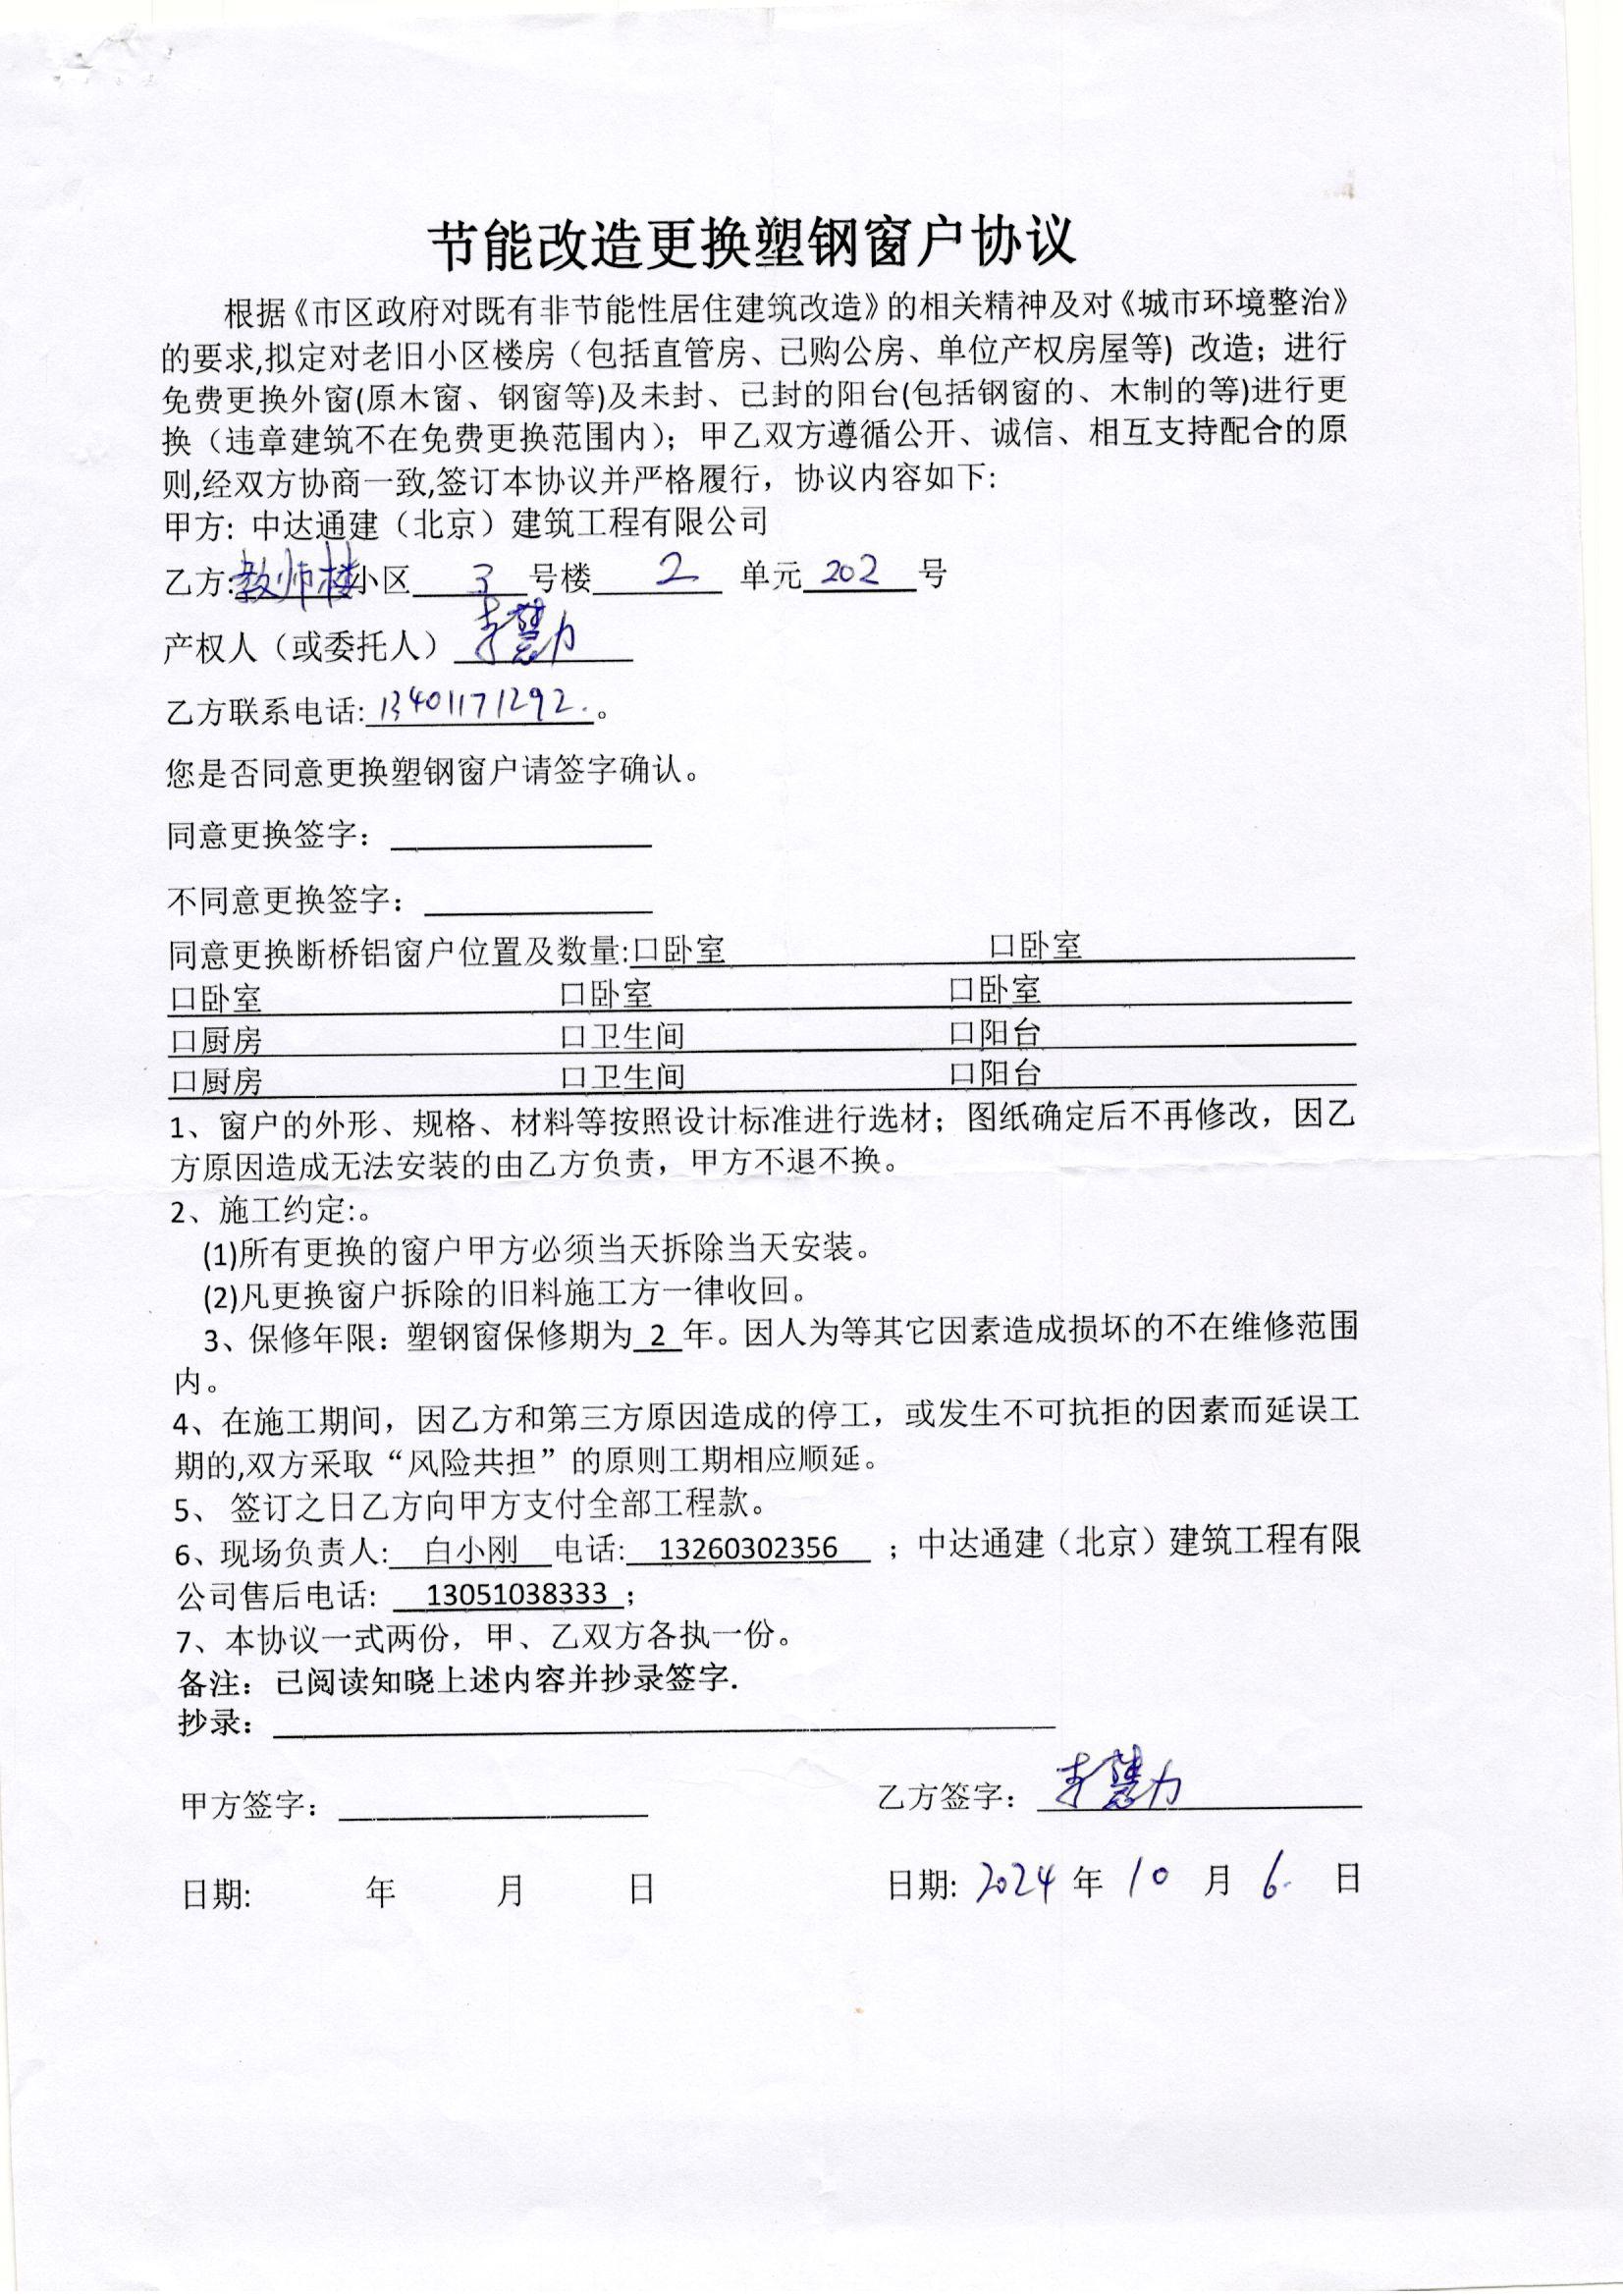 节能改造更换塑钢窗户协议
根据《市区政府对既有非节能性居住建筑改造》的相关精神及对《城市环境整治》
的要求,拟定对老旧小区楼房（包括直管房、已购公房、单位产权房屋等）改造；进行
免费更换外窗(原木窗、钢窗等)及未封、已封的阳台(包括钢窗的、木制的等)进行更
换（违章建筑不在免费更换范围内）；甲乙双方遵循公开、诚信、相互支持配合的原
则,经双方协商一致,签订本协议并严格履行，协议内容如下:
甲方: 中达通建（北京）建筑工程有限公司
乙方:教师楼小区 3 号楼 2 单元 202 号
产权人（或委托人） 李慧力
乙方联系电话: 13401171292. 。
您是否同意更换塑钢窗户请签字确认。
同意更换签字：
不同意更换签字：
同意更换断桥铝窗户位置及数量:口卧室 口卧室
口卧室 口卧室 口卧室
口厨房 口卫生间 口阳台
口厨房 口卫生间 口阳台
1、窗户的外形、规格、材料等按照设计标准进行选材；图纸确定后不再修改，因乙
方原因造成无法安装的由乙方负责，甲方不退不换。
2、施工约定:。
(1)所有更换的窗户甲方必须当天拆除当天安装。
(2)凡更换窗户拆除的旧料施工方一律收回。
3、保修年限：塑钢窗保修期为 2 年。因人为等其它因素造成损坏的不在维修范围
内。
4、在施工期间，因乙方和第三方原因造成的停工，或发生不可抗拒的因素而延误工
期的,双方采取“风险共担”的原则工期相应顺延。
5、 签订之日乙方向甲方支付全部工程款。
6、现场负责人: 白小刚 电话: 13260302356 ；中达通建（北京）建筑工程有限
公司售后电话: 13051038333 ；
7、本协议一式两份，甲、乙双方各执一份。
备注：已阅读知晓上述内容并抄录签字.
抄录：
甲方签字： 乙方签字： 李慧力
日期: 年 月 日 日期: 2024 年 10 月 6. 日